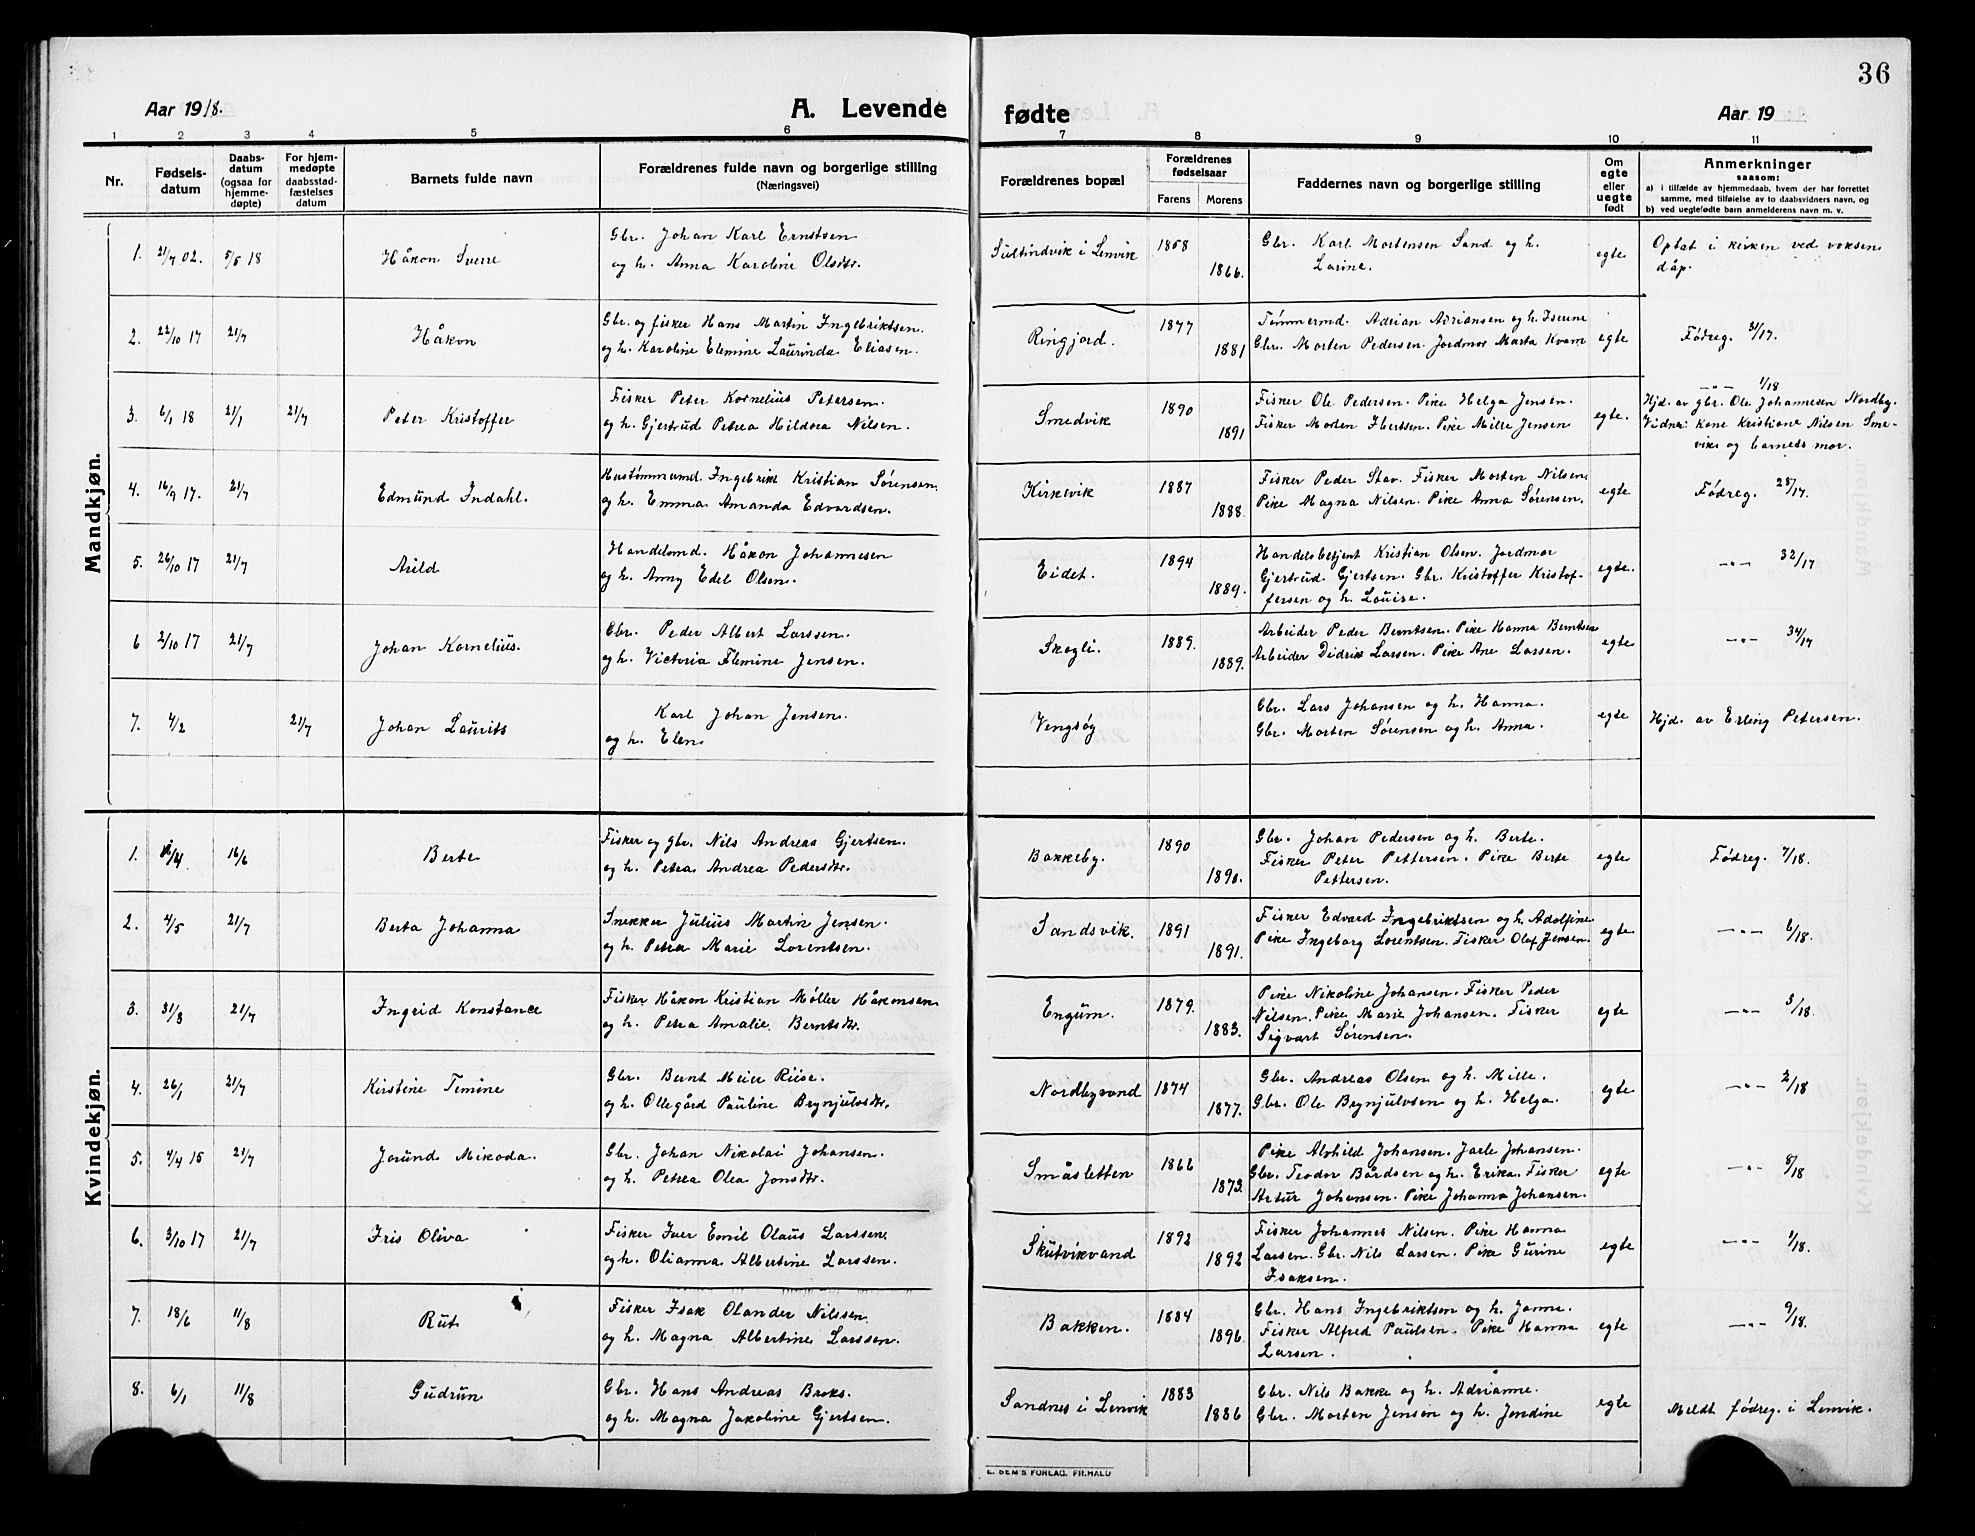 36
Aar 1918.
A. Levende fødte
Aar 19
1 2 3 4 5 6 7 8 9 10 11
Nr.
Fødselsdatum
Daabsdatum (ogsaa for hjemmedøpte)
For hjemmedøpte daabsstadfæstelses datum
Barnets fulde navn
Forældrenes fulde navn og borgerlige stilling
(Næringsvei)
Forældrenes bopæl
Forældrenes fødselsaar
Farens Morens
Faddernes navn og borgerlige stilling
Om egte eller uegte født
Anmerkninger
saasom:
a) i tilfælde av hjemmedaab, hvem der har forrettet
samme, med tilføielse av to daabsvidners navn, og
b) ved uegtefødte barn anmelderens navn m. v.
Mandkjøn.
1. 21/7 02. 5/5 18 Håkon Sverre
Gbr. Johan Karl Ernstsen
og h. Anna Karoline Olsdtr.
Sultindvik i Lenvik 1858 1866.
Gbr. Karl Mortensen Sand og h.
Larine.
egte
Optat i kirken ved voksen
dåp.
2. 22/10 17 21/7 Håkon
Gbr. og fisker Hans Martin Ingebriktsen.
og h. Karoline Elemine Laurinda Eliasen.
Ringjord. 1877 1881
Tømmermd. Adrian Adriansen og h. Iserine
Gbr. Morten Pedersen. Jordmor Marta Kvam
egte
Fødreg. 31/17.
3. 6/1 18 21/1 21/7 Peter Kristoffer
Fisker Peter Kornelius Petersen.
og h. Gjertrud Petrea Hildora Nilsen.
Smedvik 1890 1891
Fisker Ole Pedersen. Pike Helga Jensen.
Fisker Morten Ibertsen. Pike Mille Jensen
egte.
—"— 1/18
Hjd. av gbr. Ole Johannesen Nordby.
Vidner: Kone Kristiane Nilsen Sme-
vik og barnets mor.
4. 16/9 17. 21/7 Edmund Indahl.
Hustømmermd. Ingebrikt Kristian Sørensen
og h. Emma Amanda Edvardsen.
Kirkevik 1887 1888.
Fisker Peder Stav. Fisker Morten Nilsen
Pike Magna Nilsen. Pike Anna Sørensen.
egte
Fødreg. 28/17.
5. 26/10 17 21/7 Arild
Handelsmd. Håkon Johannesen
og h. Anny Edel Olsen.
Eidet. 1894 1889.
Handelsbetjent Kristian Olsen. Jordmor
Gjertrud Gjertsen. Gbr. Kristoffer Kristof-
fersen og h. Louise.
egte.
—"— 32/17
6 2/10 17 21/7 Johan Kornelius.
Gbr. Peder Albert Larssen.
og h. Victoria Elemine Jensen.
Skogli. 1889. 1889.
Arbeider Peder Berntsen. Pike Hanna Berntsen
Arbeider Didrik Larsen. Pike Ane Larsen.
egte
—"— 34/17
7. 4/2 21/7 Johan Laurits
Karl Johan Jensen.
og h. Elen
Vengsøy
Gbr. Lars Johansen og h. Hanna.
Gbr. Morten Sørensen og h. Anna.
egte
Hjd. av Erling Petersen.
Kvindekjøn.
1. 16/6 Berte
Fisker og gbr. Nils Andreas Gjertsen.
og h. Petra Andrea Pedersdtr.
Bakkeby. 1890 1890.
Gbr. Johan Pedersen og h. Berte.
Fisker Peter Pettersen. Pike Berte
Pettersen.
egte
Fødreg. 7/18.
2. 4/5 21/7 Berta Johanna
Snekker Julius Martin Jensen.
og h. Petra Marie Lorentsen.
Sandsvik. 1891 1891.
Fisker Edvard Ingebriktsen og h. Adolfine
Pike Ingeborg Lorentsen. Fisker Olaf Jensen.
egte
—"— 6/18.
3. 31/3 21/7 Ingrid Konstance
Fisker Håkon Kristian Møller Håkonsen
og h. Petra Amalie Berntsdtr.
Engum. 1879. 1883.
Pike Nikoline Johansen. Fisker Peder
Nilsen. Pike Marie Johansen. Fisker
Sigvart Sørensen.
egte
—"— 3/18.
4. 26/1 21/7 Kristine Temine
Gbr. Bernt Meier Riise.
og h. Ollegård Pauline Brynjulvsdtr.
Nordbyvand 1874 1877.
Gbr. Andreas Olsen og h. Mille.
Gbr. Ole Brynjulvsen og h. Helga.
egte
—"— 2/18
5. 4/4 15 21/7 Jorund Mikoda.
Gbr. Johan Nikolai Johansen.
og h. Petrea Olea Jonsdtr.
Småsletten 1866 1873.
Pike Alvhild Johansen. Jarle Johansen.
Gbr. Teodor Bårdsen og h. Erika. Fisker
Artur Johansen. Pike Johanna Johansen.
egte
—"— 8/18
6. 3/10 17 21/7 Iris Oliva
Fisker Iver Emil Olaus Larssen
og h. Olianna Albertine Larssen.
Skutvikvand 1892 1892
Fisker Johannes Nilsen. Pike Hanna
Larsen. Gbr. Nils Larsen. Pike Gurine
Isaksen.
egte
—"— 1/18.
7. 18/6 11/8 Rut
Fisker Isak Olander Nilssen
og h. Magna Albertine Larssen.
Bakken. 1884 1896.
Gbr. Hans Ingebriktsen og h. Janna.
Fisker Alfred Paulsen. Pike Hanna
Larsen.
egte
—"— 9/18.
8. 6/1 11/8 Gudrun
Gbr. Hans Andreas Broks.
og h. Magna Jakobine Gjertsen.
Sandnes i Lenvik 1883 1886
Gbr. Nils Bakke og h. Adrianne.
Gbr. Morten Jensen og h. Jondine
egte
Meldt fødreg. i Lenvik.
E. SEM'S FORLAG, FR.HALD